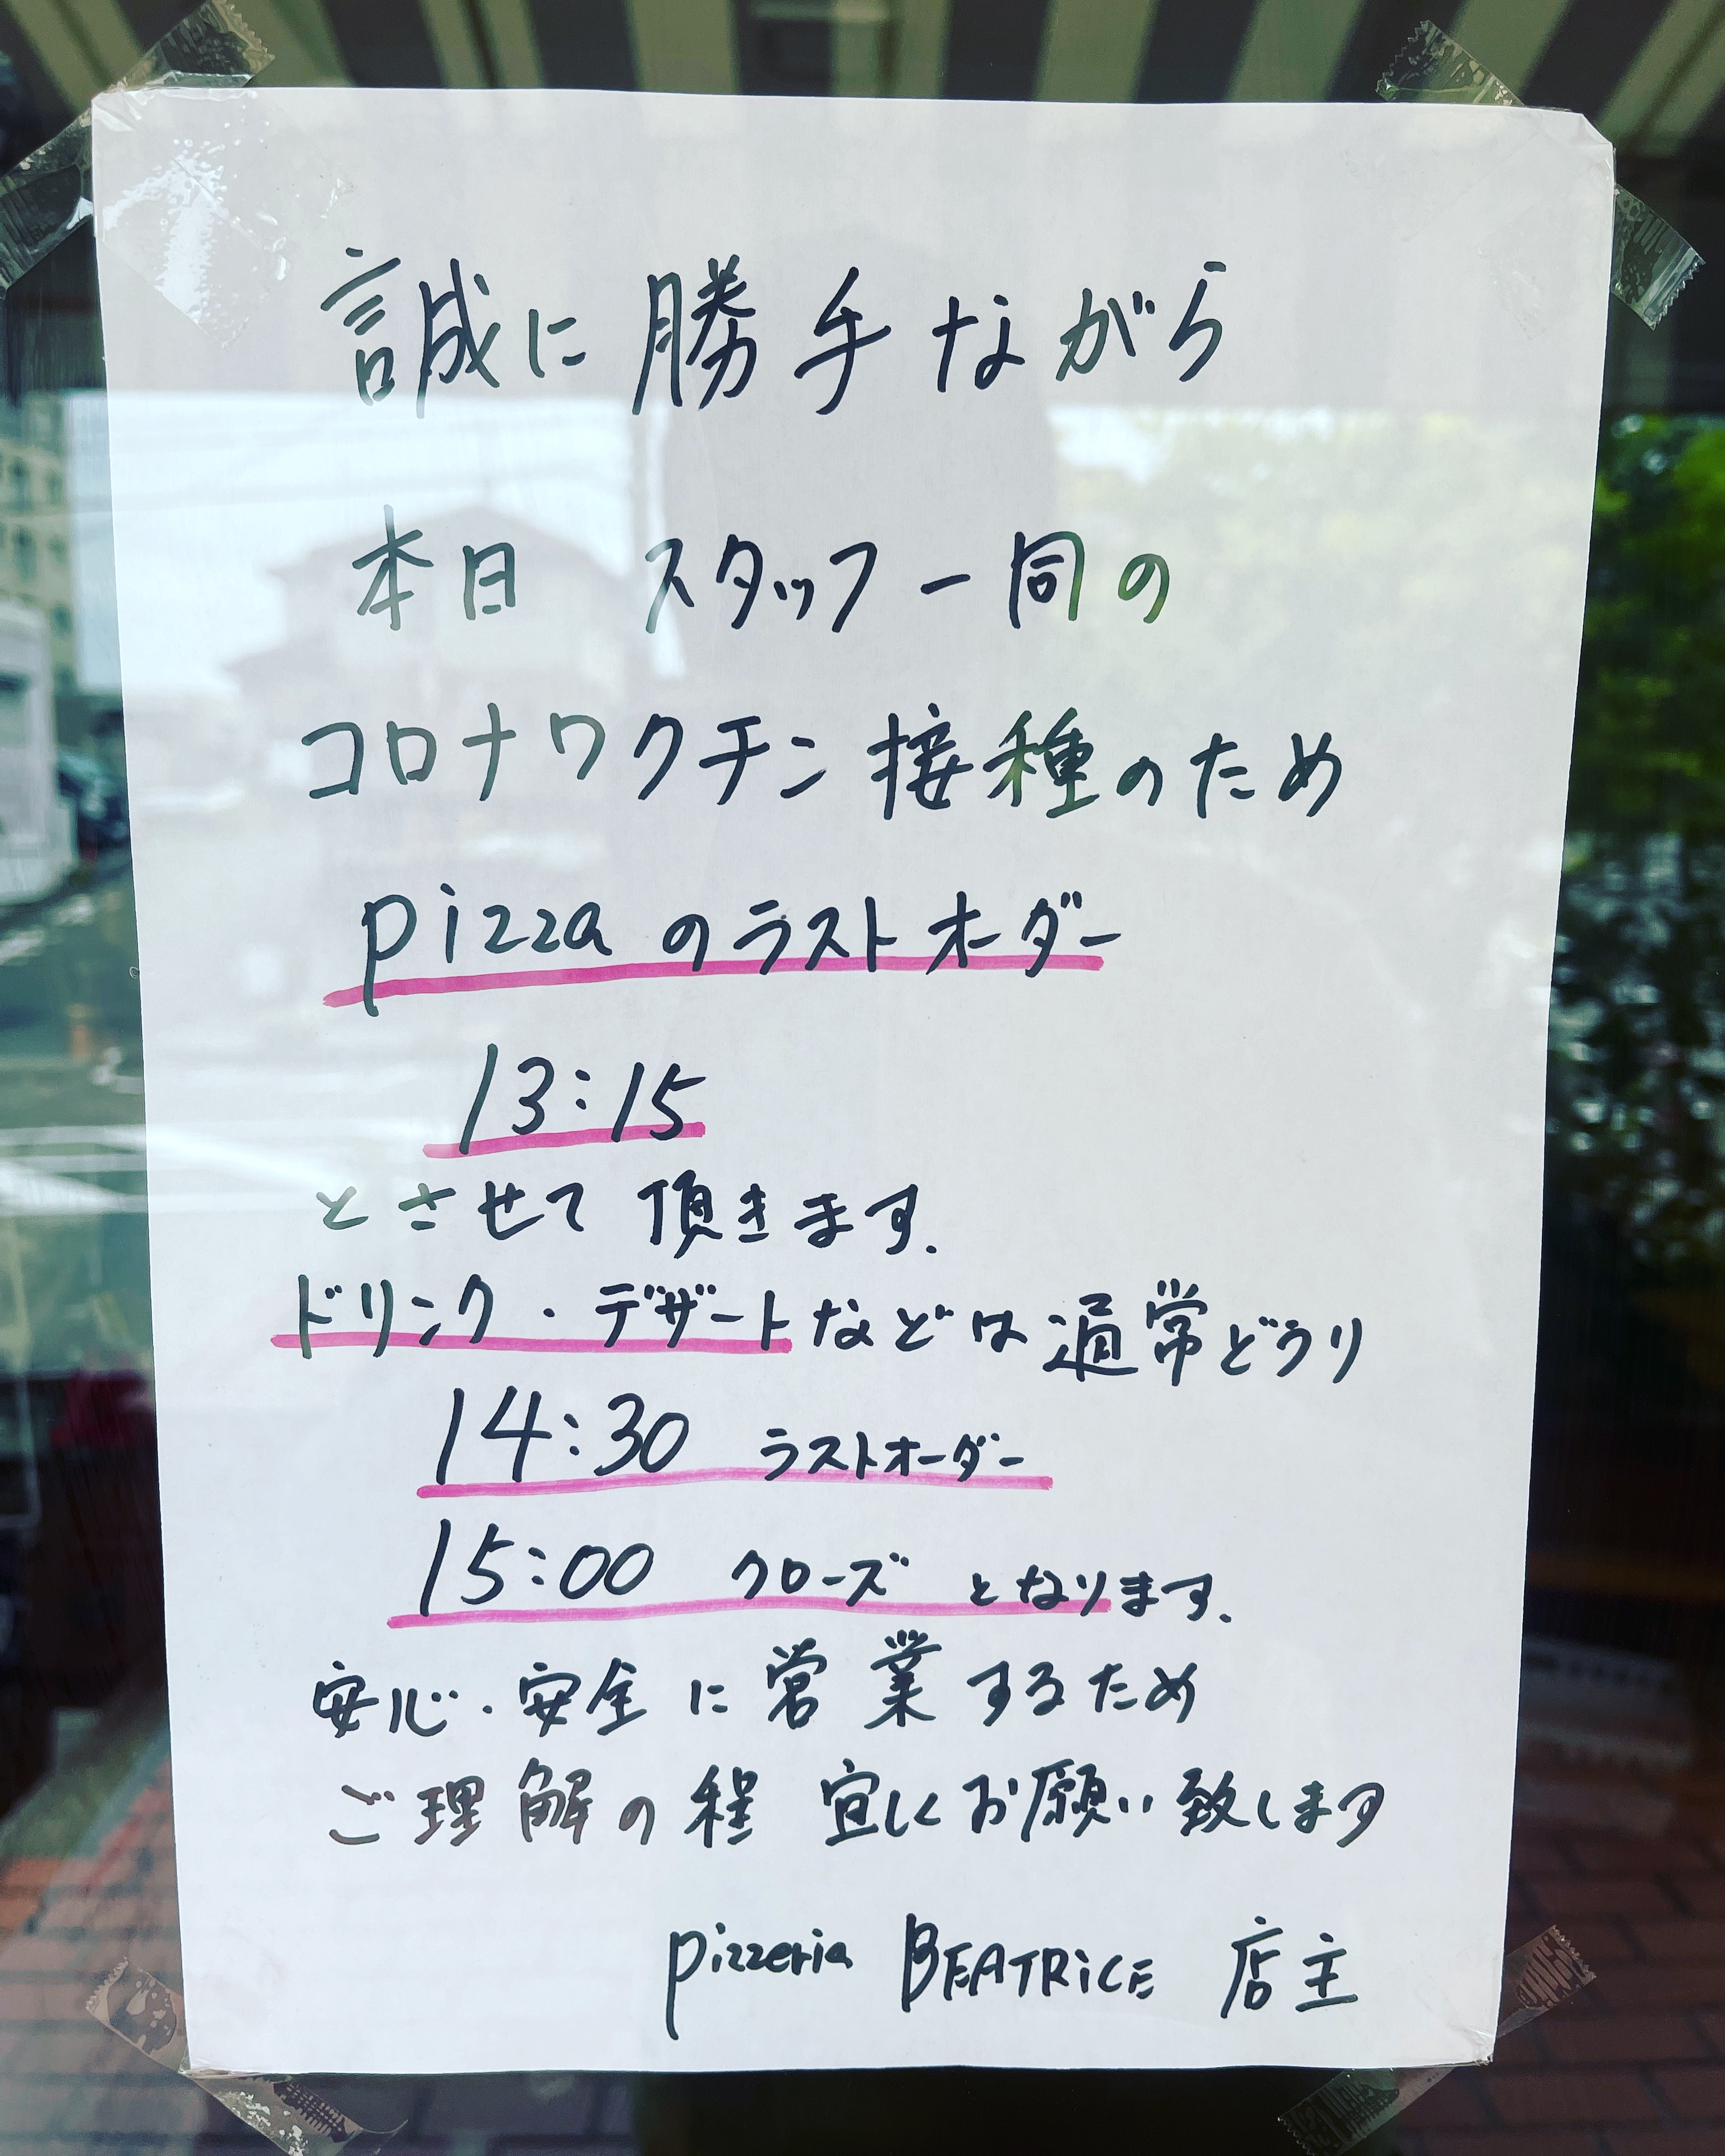 誠に勝手ながら
本日 スタッフ一同の
コロナワクチン接種のため
pizza のラストオーダー
13:15
とさせて頂きます.
ドリンク・デザートなどは通常どうり
14:30 ラストオーダー
15:00 クローズ となります.
安心・安全に営業するため
ご理解の程 宜しくお願い致します
pizzeria BEATRiCE 店主